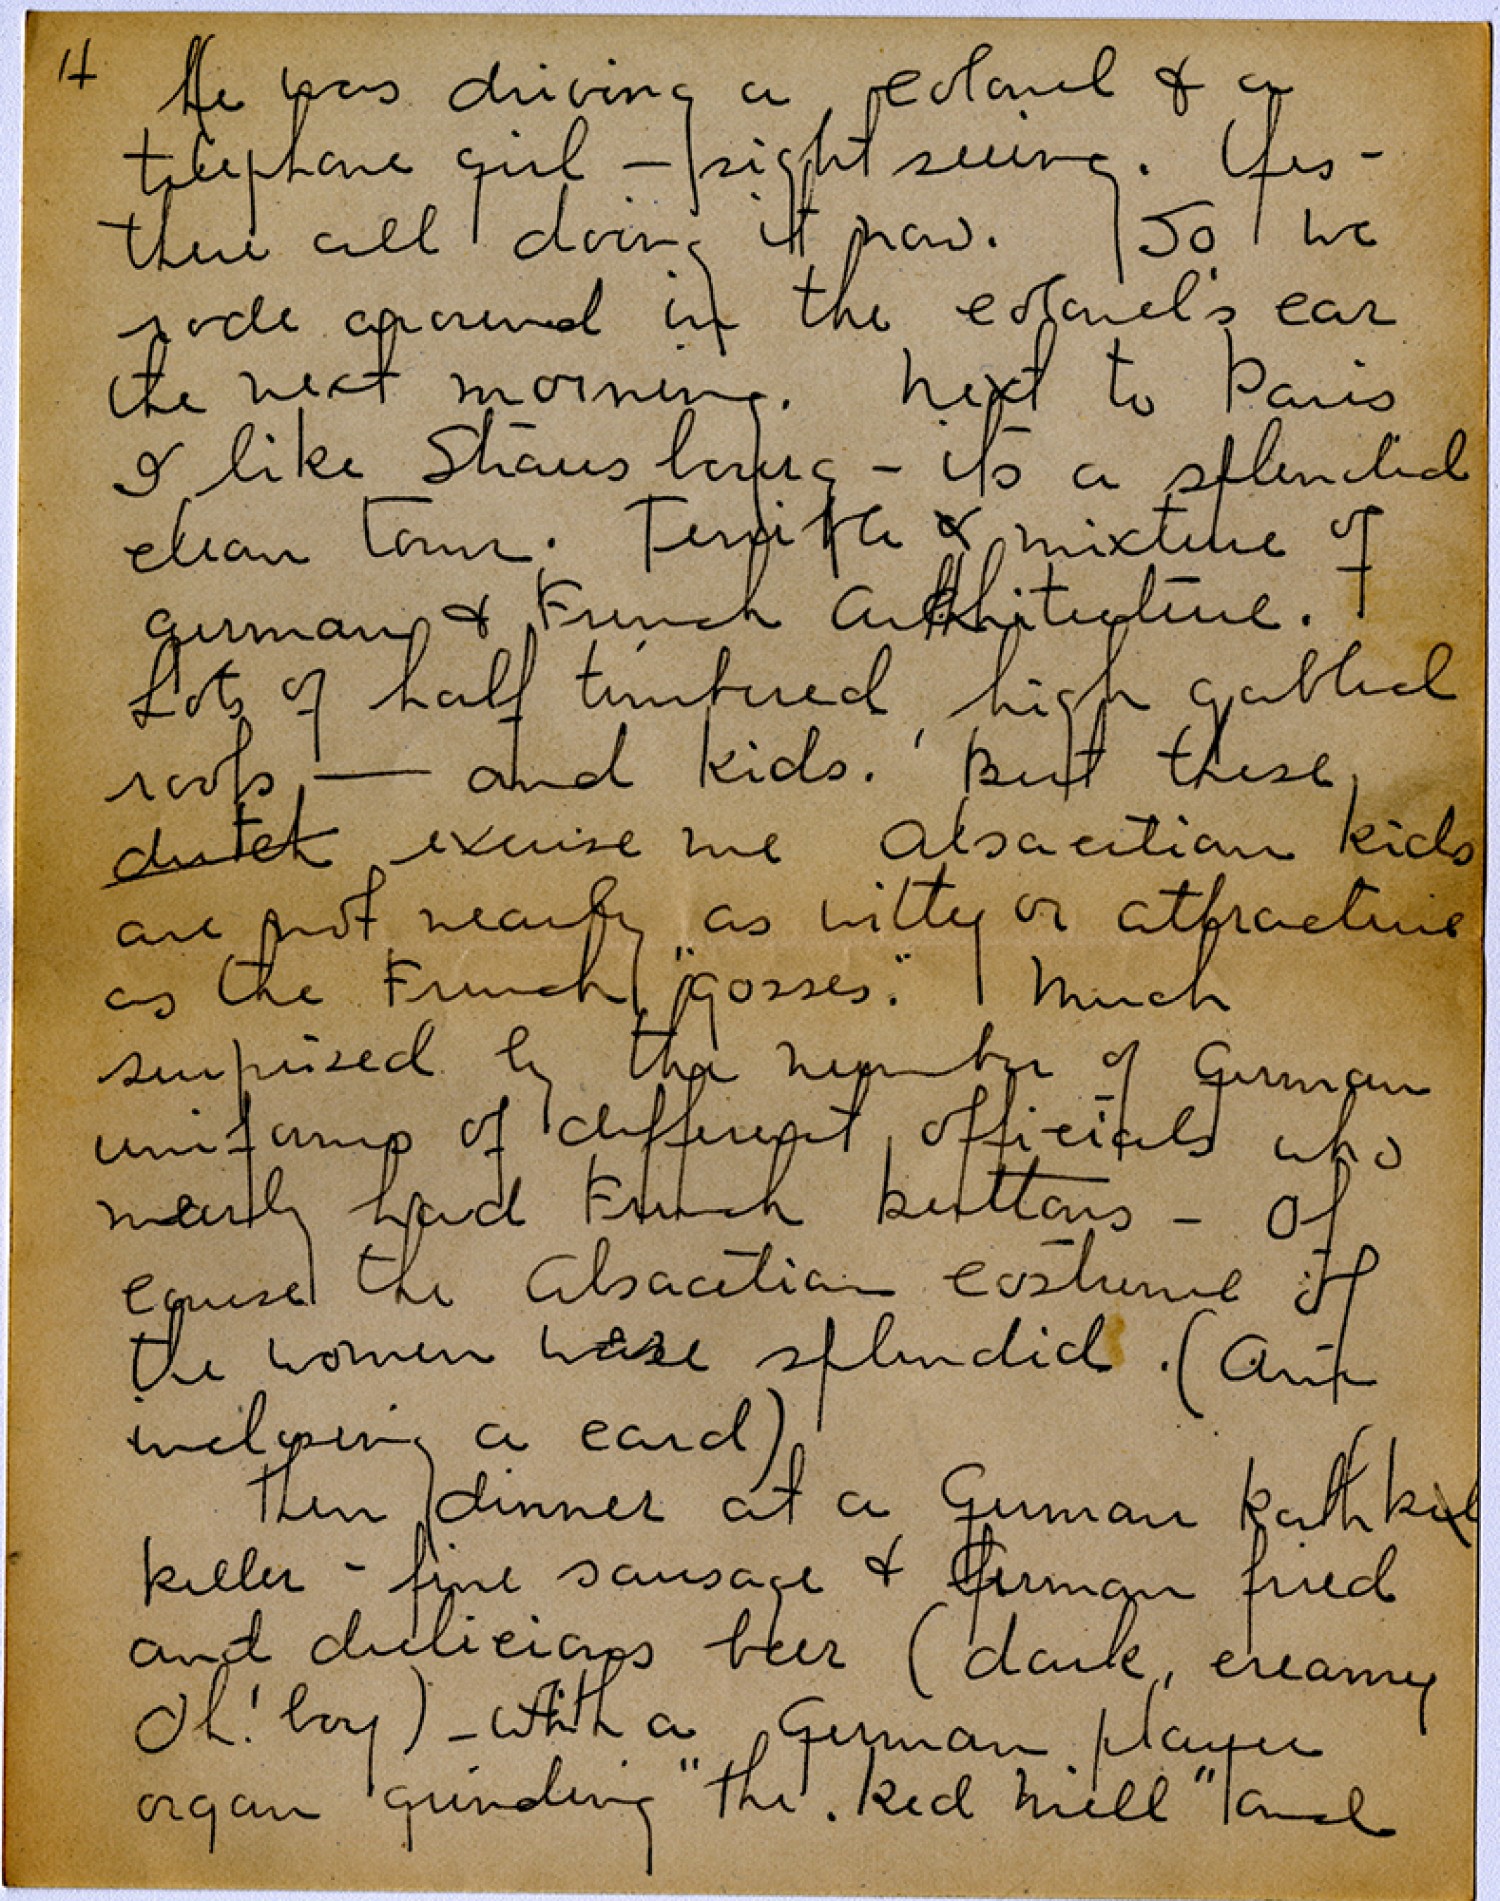 4
He was driving a colonel & a
telephone girl — sight seeing. Yes -
there all doing it now. So we
rode around in the colonel's car
the next morning. Next to Paris
I like Strausbourg - its a splendid
clean town. Terrible mixture of
German & French Architecture.
Lots of half timbered, high gabled
roofs — and kids. But these
dutch excuse me Alsacitian kids
are not nearly as witty or attractive
as the French "gosses." Much
surprised by the number of German
uniforms of different officials who
nearly had French buttons - Of
course the Alsacitian costume of
the women were splendid. (Am
inclosing a card)
Then dinner at a German
keller - fine sausage & German fried
and delicious beer (dark, creamy
Oh! boy) - with a German player
organ grinding "the Red Mill" and